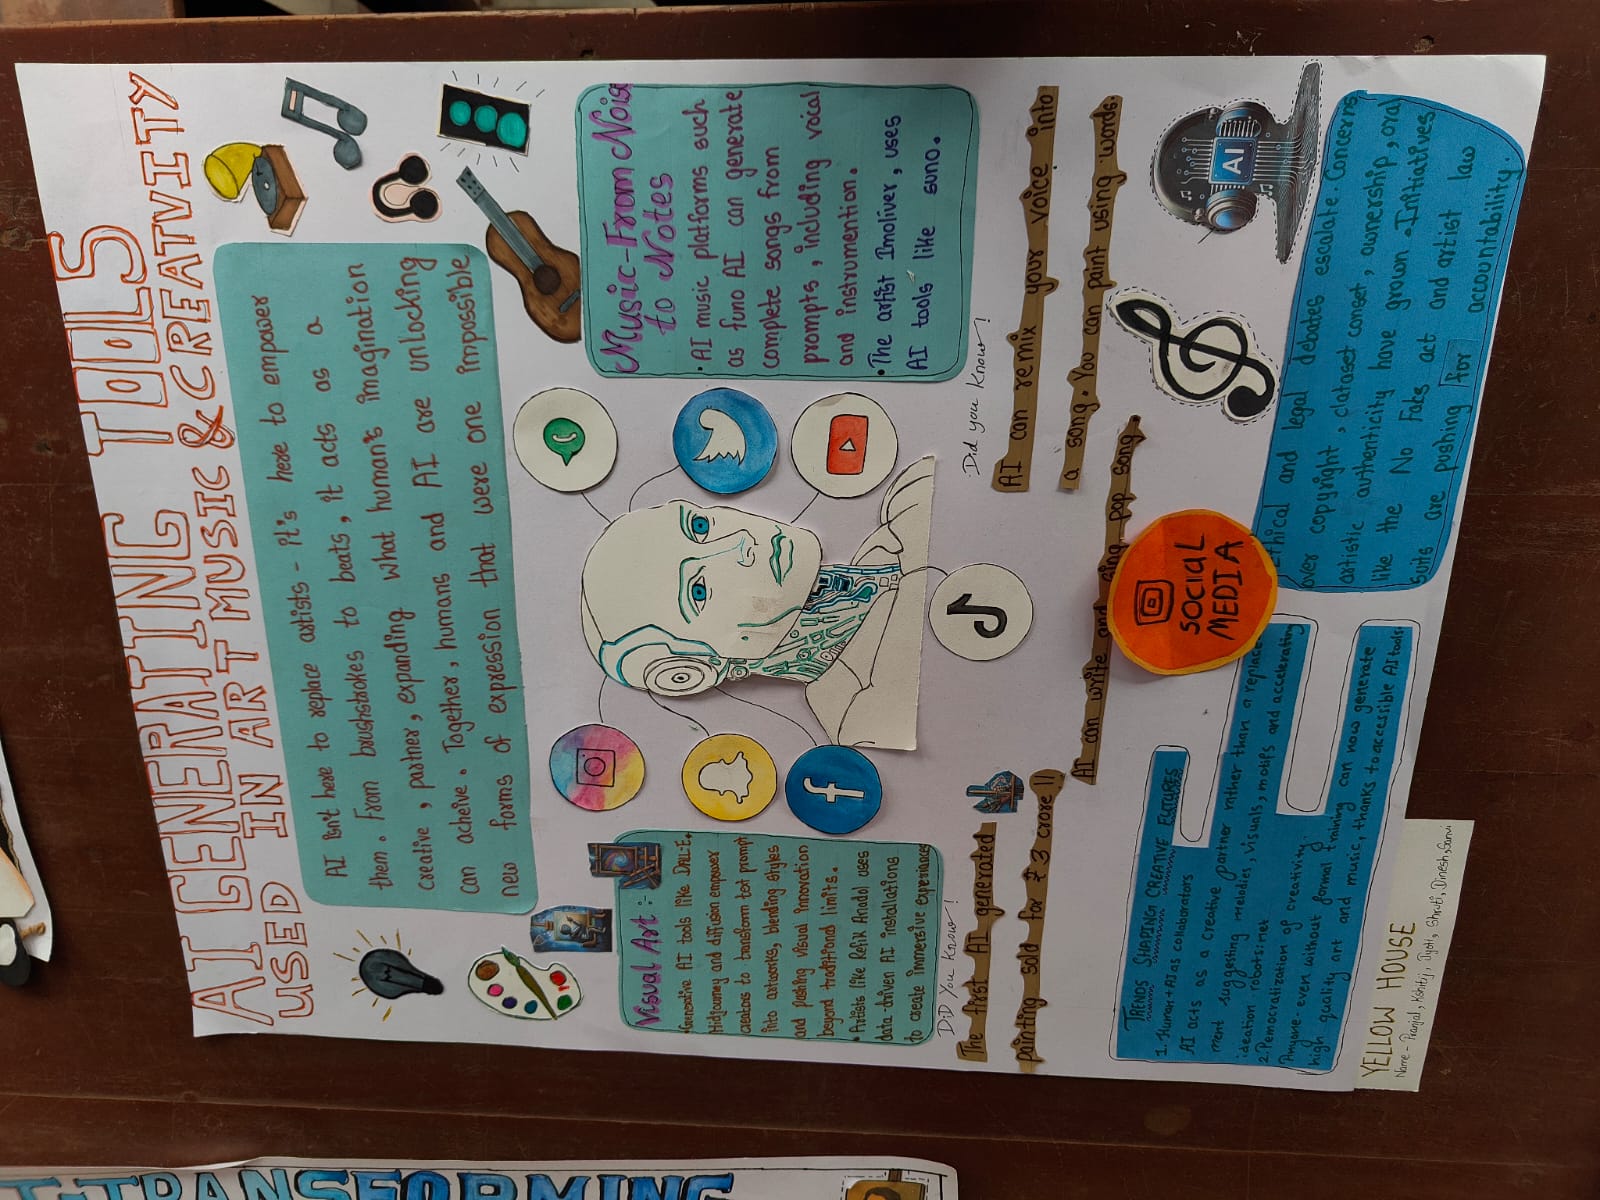 AI GENERATING TOOLS
USED IN ART MUSIC & CREATVITY
AI isn't here to replace artists - it's here to empower
them. From brushstrokes to beats, it acts as a
creative, partner, expanding what human's imagination
can acheive. Together, humans and AI are unlocking
new forms of expression that were one impossible
Visual Art :-
Generative AI tools like DALL-E.
Midjourney and diffusion empower
creators to transform text prompt
into artworks, blending styles
and pushing visual innovation
beyond traditional limits.
• Artists like Refik Anadol uses
data-driven AI installations
to create immersive experiences
Music-From Noise
to Notes
• AI music platforms such
as funo AI can generate
complete songs from
prompts, including vocal
and instrumention.
• The artist Imoliver, uses
AI tools like suno.
f
DiD You Know!
The first AI generated
painting sold for ₹ 3 crore!!
Did you Know!
AI can remix your voice into
a song. You can paint using words.
AI can write and sing pop song.
AI
SOCIAL
MEDIA
TRENDS SHAPING CREATIVE FUTURES
1. Human + AI as collaborators
AI acts as a creative partner rather than a replace
ment suggesting melodies, visuals, motifs and accelerating
ideation.
2. Democratization of creativity
Anyone-even without formal training can now generate
high quality art and music, thanks to accessible AI tools
Ethical and legal debates escalate. Concerns
over copyright, dataset conset, ownership, and
artistic authenticity have grown. Initiatives
like the No Faks act and artist law
suits are pushing for accountability.
YELLOW HOUSE
Name - Pranjal, Kshitij, Jyoti, Shruti, Dinesh, Sanvi
TRANSFORMING